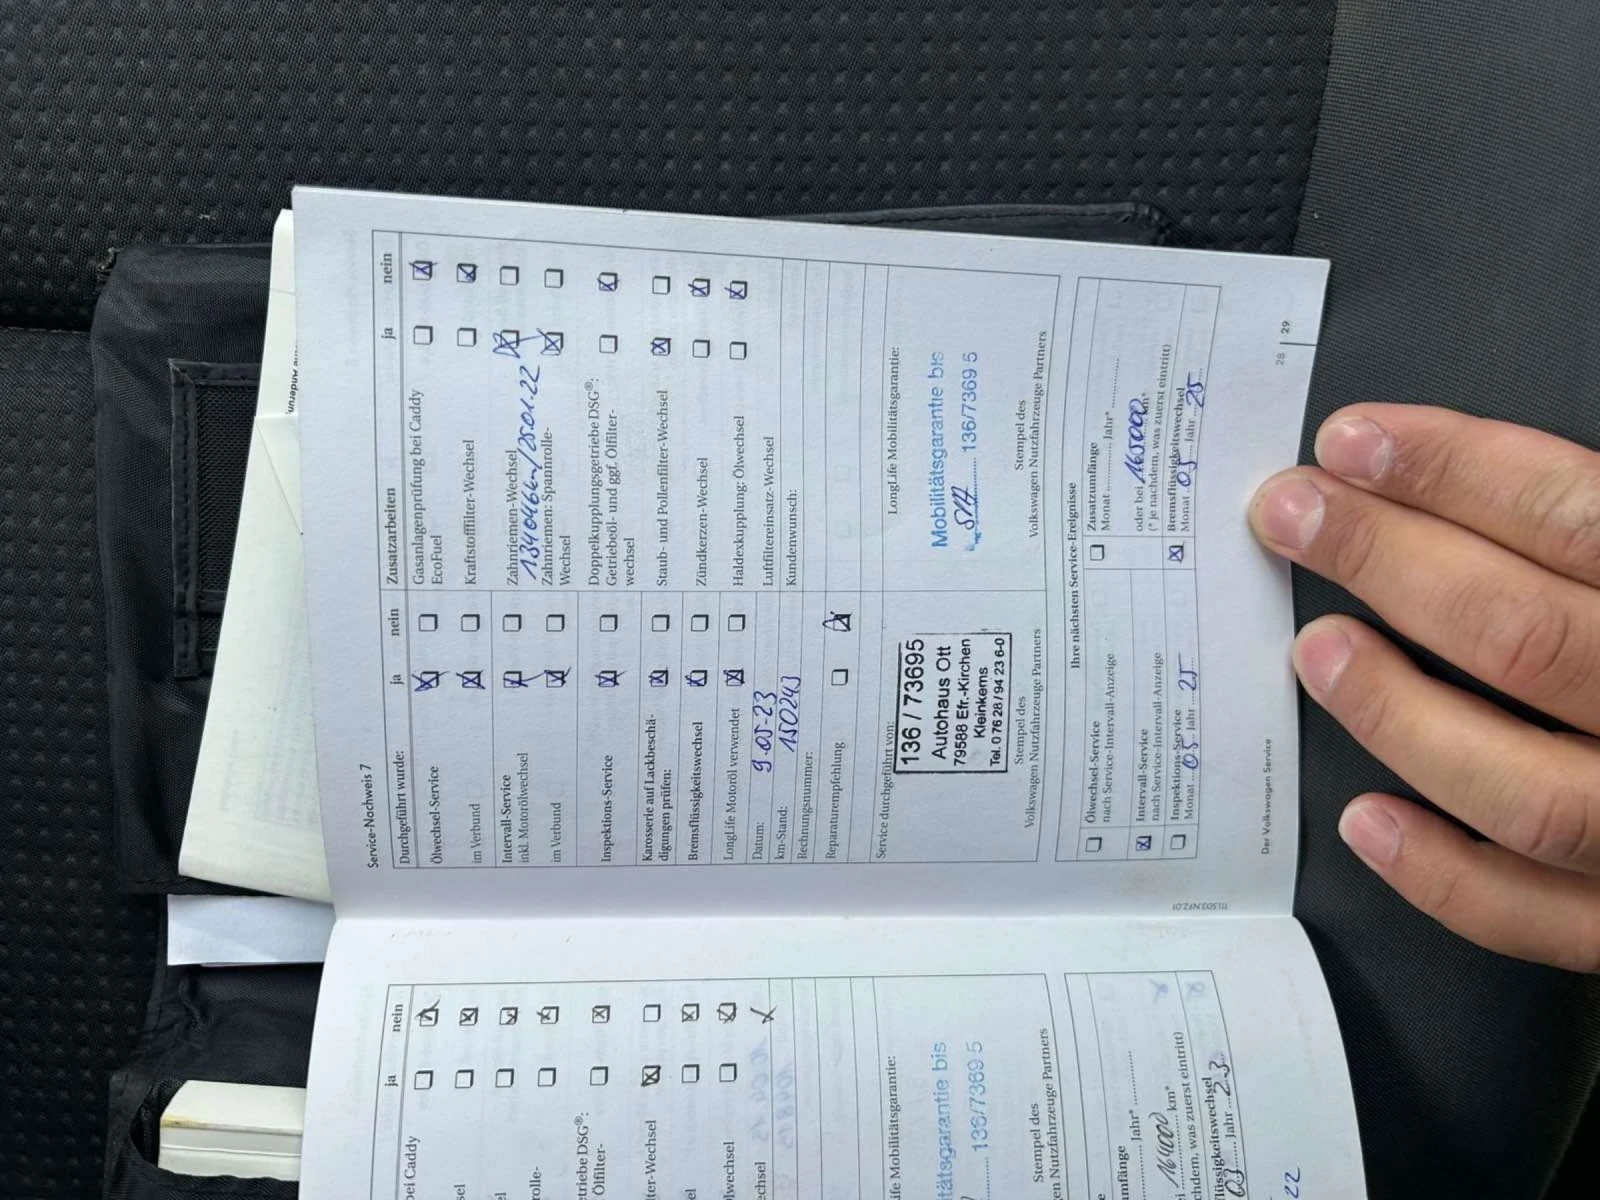 Service-Nachweis 7
Durchgeführt wurde: ja nein
Ölwechsel-Service
im Verbund
Intervall-Service
inkl. Motorölwechsel
im Verbund
Inspektions-Service
Karosserie auf Lackbeschä-
digungen prüfen:
Bremsflüssigkeitswechsel
LongLife Motoröl verwendet
Datum: 9.05.23
km-Stand: 150243
Rechnungsnummer:
Reparaturempfehlung
Zusatzarbeiten ja nein
Gasanlagenprüfung bei Caddy
EcoFuel
Kraftstofffilter-Wechsel
Zahnriemen-Wechsel
134046km/25.01.22
Zahnriemen: Spannrolle-
Wechsel
Doppelkupplungsgetriebe DSG®:
Getriebeöl- und ggf. Ölfilter-
wechsel
Staub- und Pollenfilter-Wechsel
Zündkerzen-Wechsel
Haldexkupplung: Ölwechsel
Luftfiltereinsatz-Wechsel
Kundenwunsch:
Service durchgeführt von:
136 / 73695
Autohaus Ott
79588 Efr.-Kirchen
Kleinkems
Tel. 0 76 28 / 94 23 6-0
Stempel des
Volkswagen Nutzfahrzeuge Partners
LongLife Mobilitätsgarantie:
Mobilitätsgarantie bis
136/7369 5
Stempel des
Volkswagen Nutzfahrzeuge Partners
Ihre nächsten Service-Ereignisse
Ölwechsel-Service
nach Service-Intervall-Anzeige
Intervall-Service
nach Service-Intervall-Anzeige
Inspektions-Service
Monat 05 Jahr 25
Zusatzumfänge
Monat ........ Jahr* ........
oder bei 165000 km*
(* je nachdem, was zuerst eintritt)
Bremsflüssigkeitswechsel
Monat 05 Jahr 25
Der Volkswagen Service
28 | 29
111.5D3.NFZ.01
ja nein
bei Caddy
sel
el
rolle-
etriebe DSG®:
Ölfilter-
lter-Wechsel
el
lwechsel
chsel
fe Mobilitätsgarantie:
itätsgarantie bis
136/7369 5
Stempel des
en Nutzfahrzeuge Partners
e
umfänge
Jahr*
ei 164000 km*
chdem, was zuerst eintritt)
flüssigkeitswechsel
03 Jahr 23
22